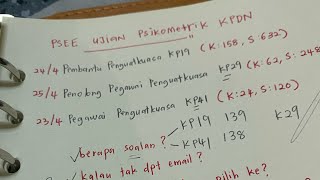 PSEE UJIAN PSIKOMETRIK KPDN
24/4 Pembantu Penguatkuasa KP19 (K:158, S:632)
25/4 Penolong Pegawai Penguatkuasa KP29 (K:62, S:248
23/4 Pegawai Penguatkuasa KP41 (K:24, S:120)
✓ berapa soalan? KP19 139 K29
KP41 138
✓ kalau tak dpt email? pilih ke?